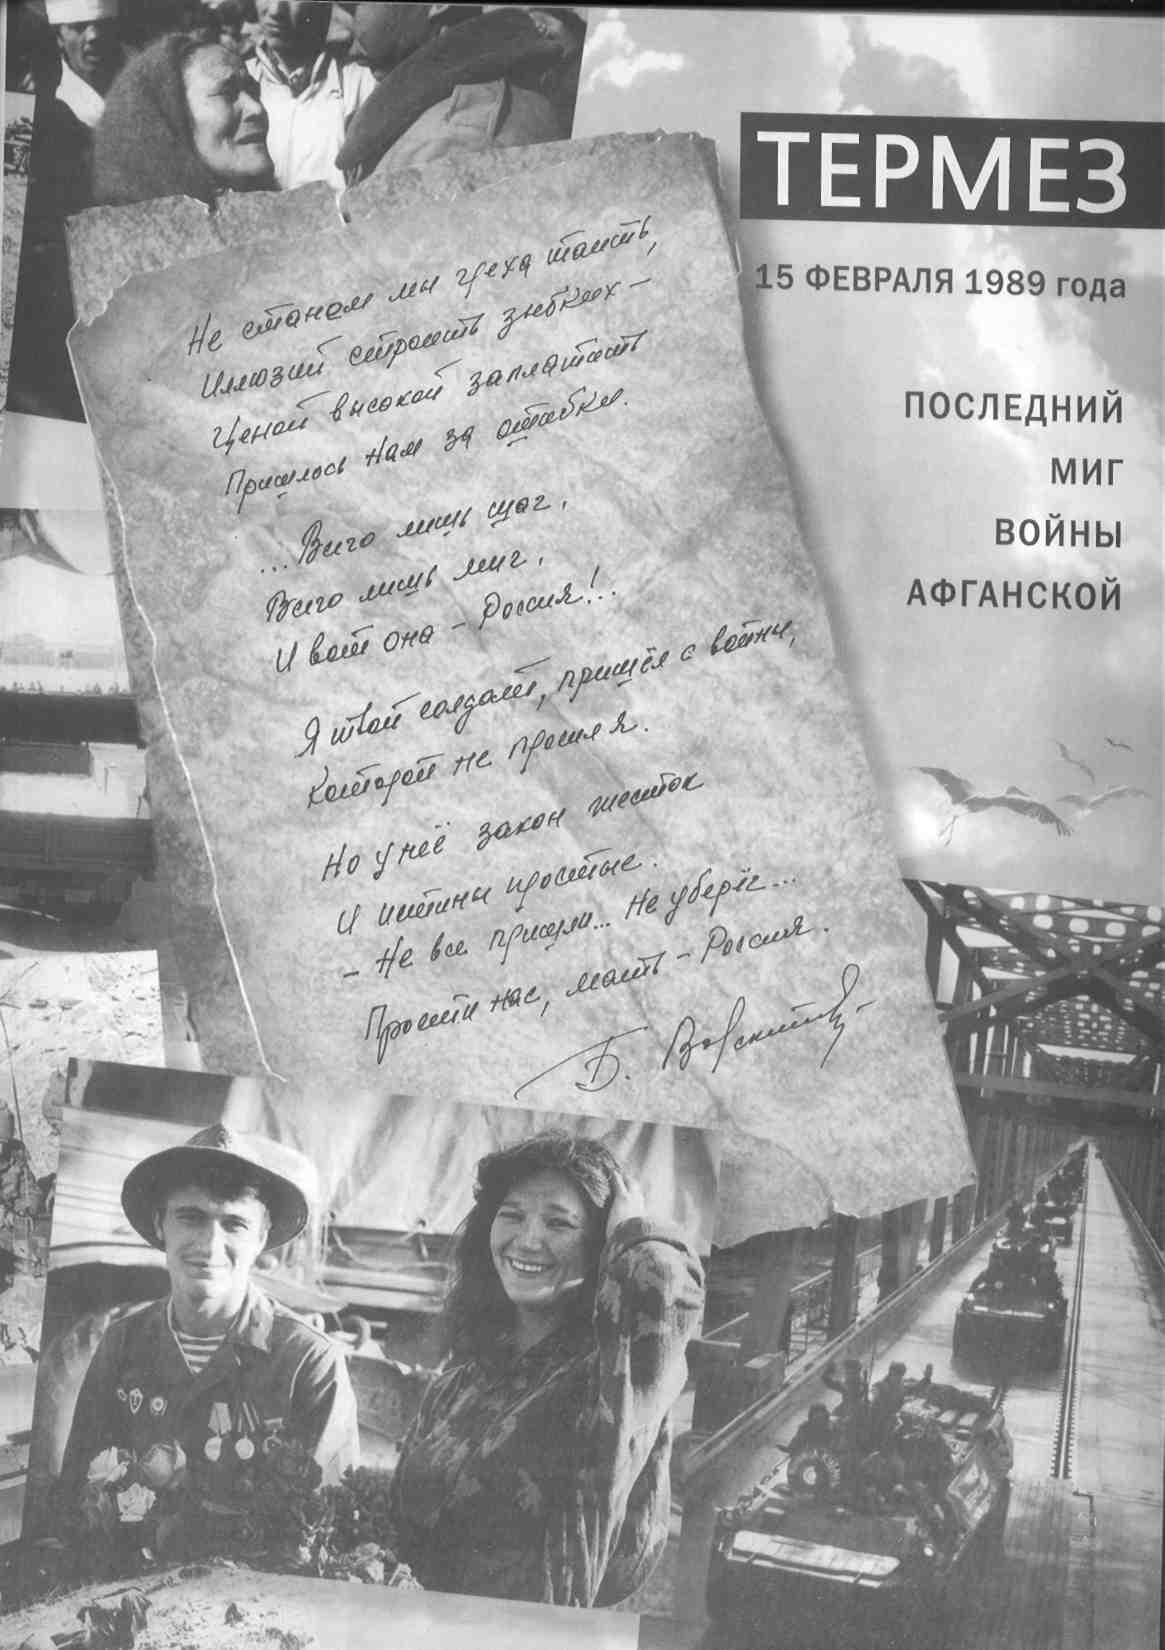 ТЕРМЕЗ
15 ФЕВРАЛЯ 1989 года
ПОСЛЕДНИЙ
МИГ
ВОЙНЫ
АФГАНСКОЙ
Не станем мы греха таить,
Иллюзий строить зыбких –
Ценой высокой заплатить
Пришлось нам за ошибки.
...Всего лишь шаг.
Всего лишь миг.
И вот она – Россия!..
Я твой солдат, пришёл с войны,
Которой не просил я.
Но у неё закон жесток
И истины простые.
– Не все пришли... Не уберёг...
Прости нас, мать – Россия.
Б.